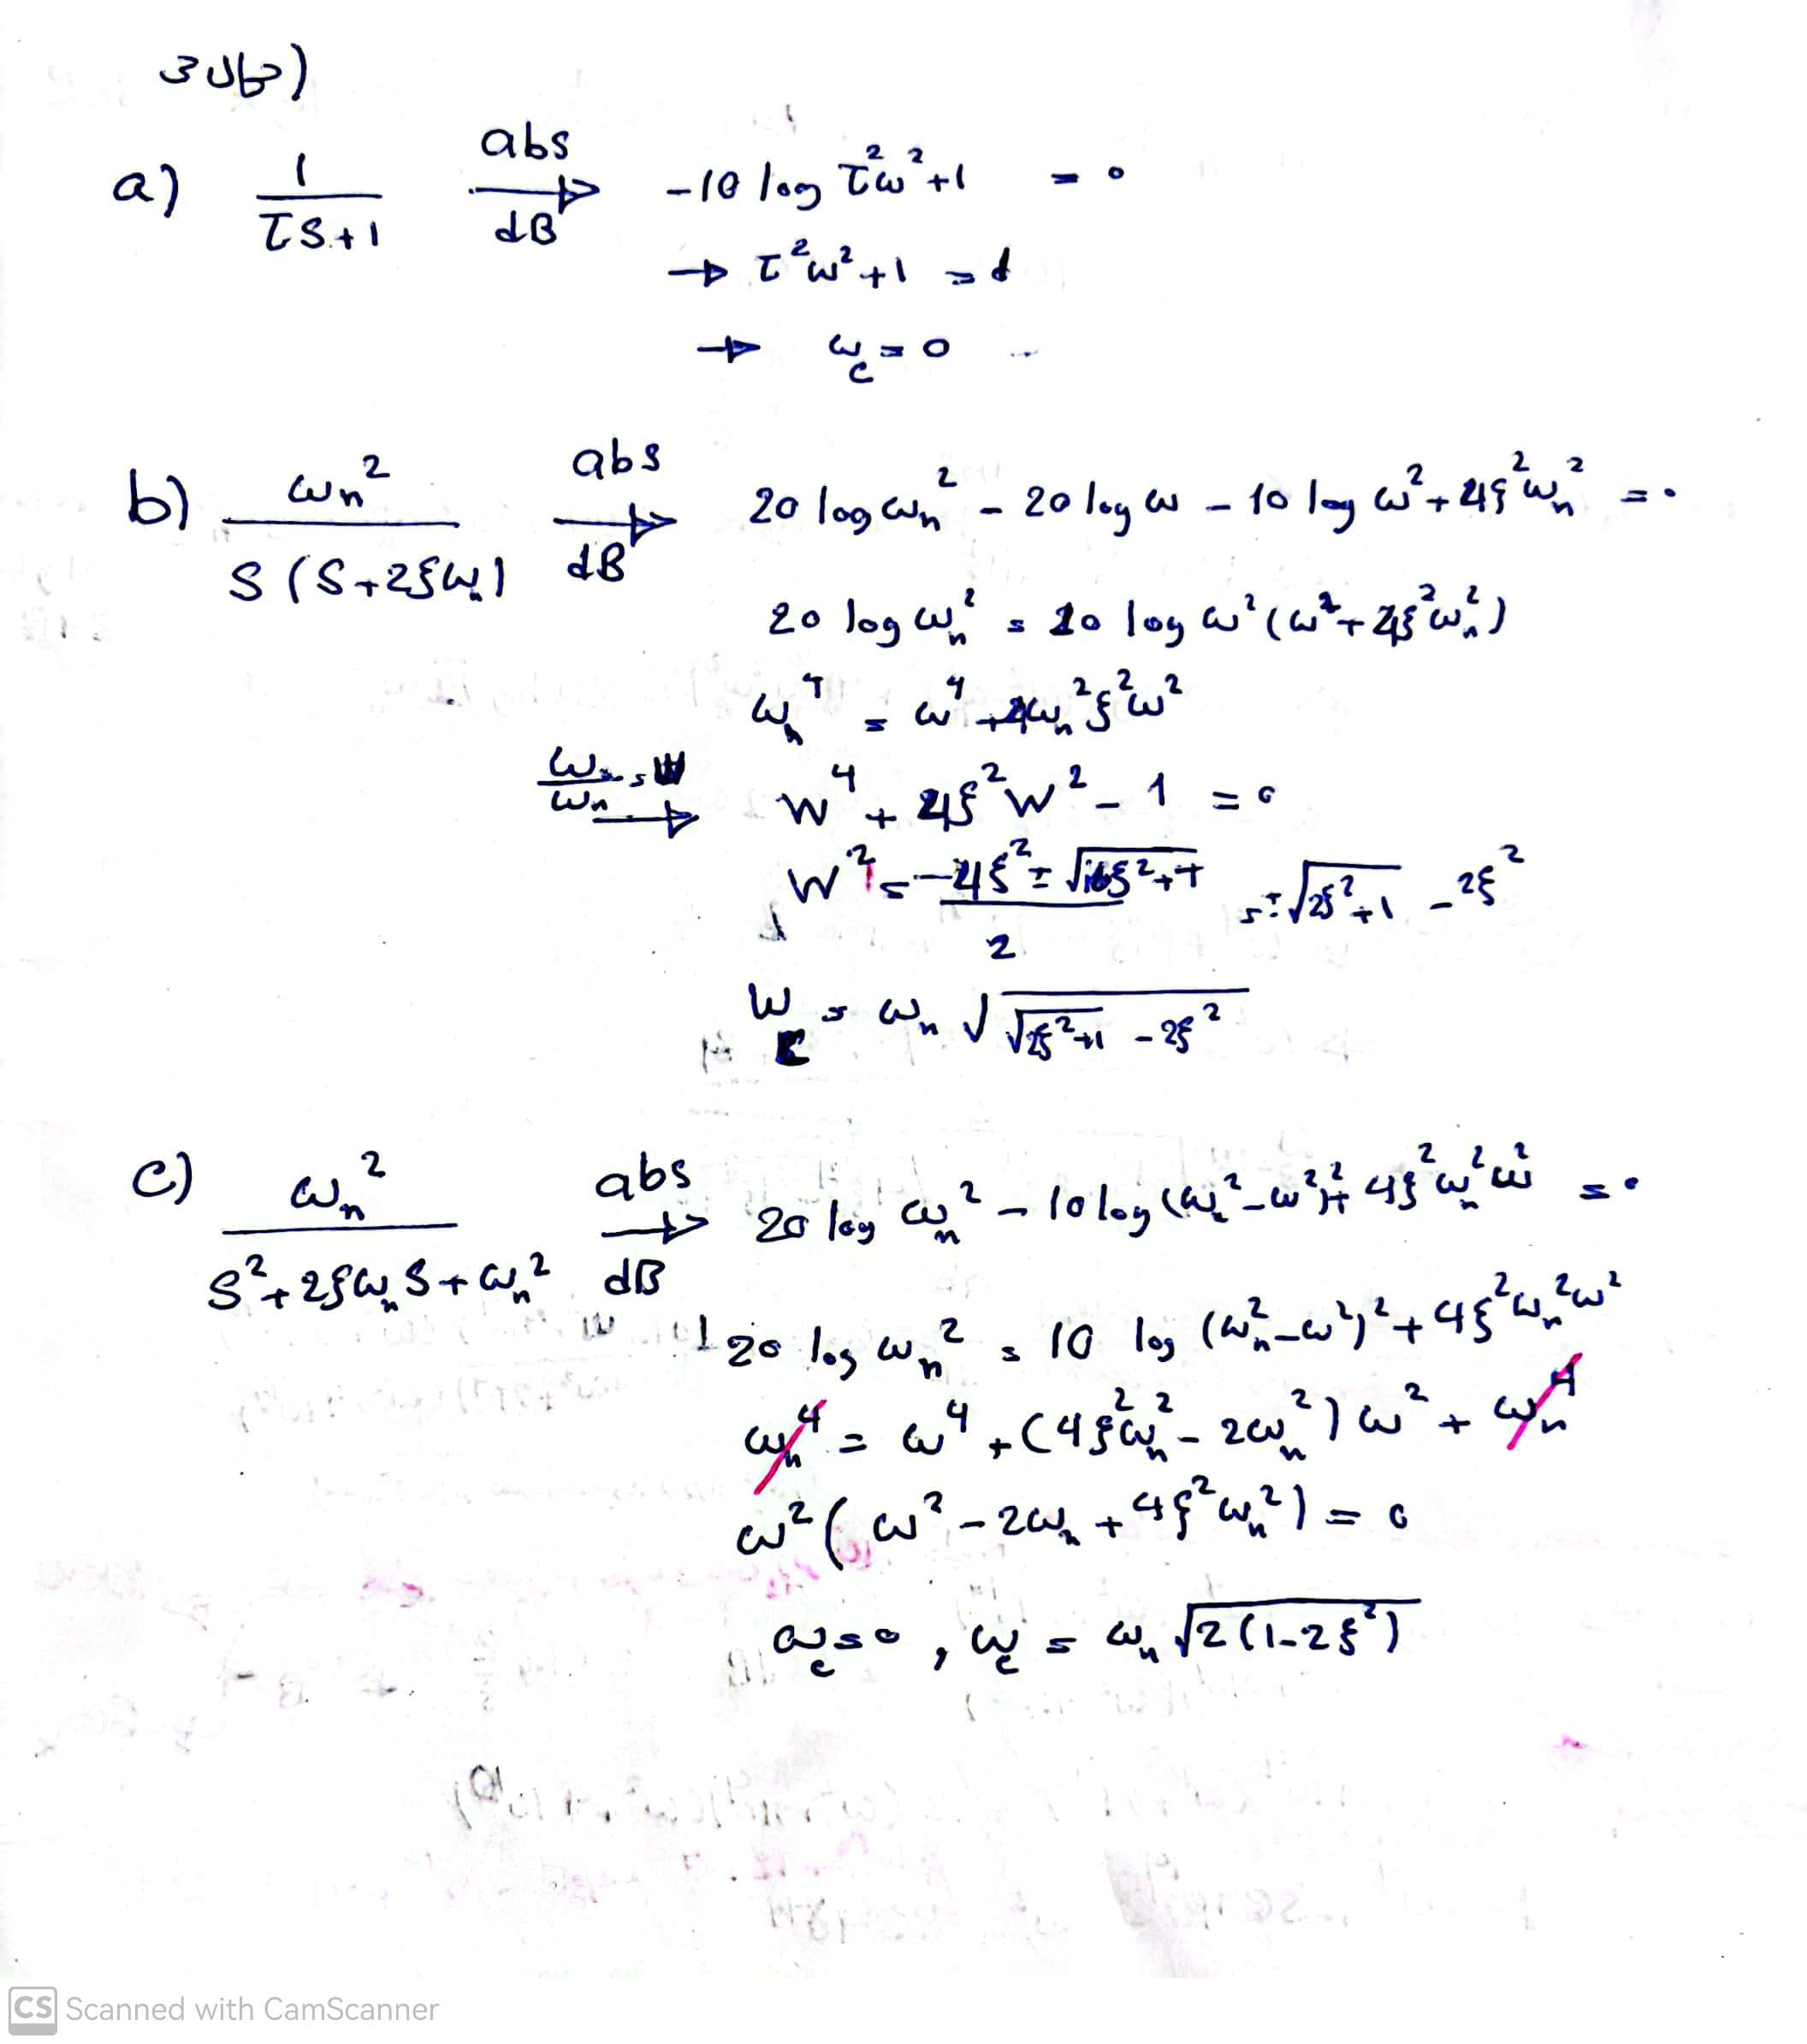 سوال 3)
a) 1/(τS+1) abs→dB -10 log τ²ω²+1 = 0
→ τ²ω²+1 = 1
→ ω_c = 0
b) ωn²/(S(S+2ξωn)) abs→dB 20 log ωn² - 20 log ω - 10 log ω²+4ξ²ωn² = 0
20 log ωn² = 10 log ω²(ω²+4ξ²ωn²)
ωn⁴ = ω⁴+4ωn²ξ²ω²
ω/ωn = W → W⁴ + 4ξ²W² - 1 = 0
W² = (-4ξ² ± √(16ξ²+4))/2 = ±√(2ξ²+1) - 2ξ²
W_c = ωn √(√(2ξ²+1) - 2ξ²)
c) ωn²/(S²+2ξωnS+ωn²) abs→dB 20 log ωn² - 10 log (ωn²-ω²)²+4ξ²ωn²ω² = 0
20 log ωn² = 10 log (ωn²-ω²)²+4ξ²ωn²ω²
ωn⁴ = ω⁴+(4ξ²ωn²-2ωn²)ω²+ωn⁴
ω²(ω²-2ωn+4ξ²ωn²) = 0
ω_c = 0 , ω_c = ωn √(2(1-2ξ²))
CS Scanned with CamScanner